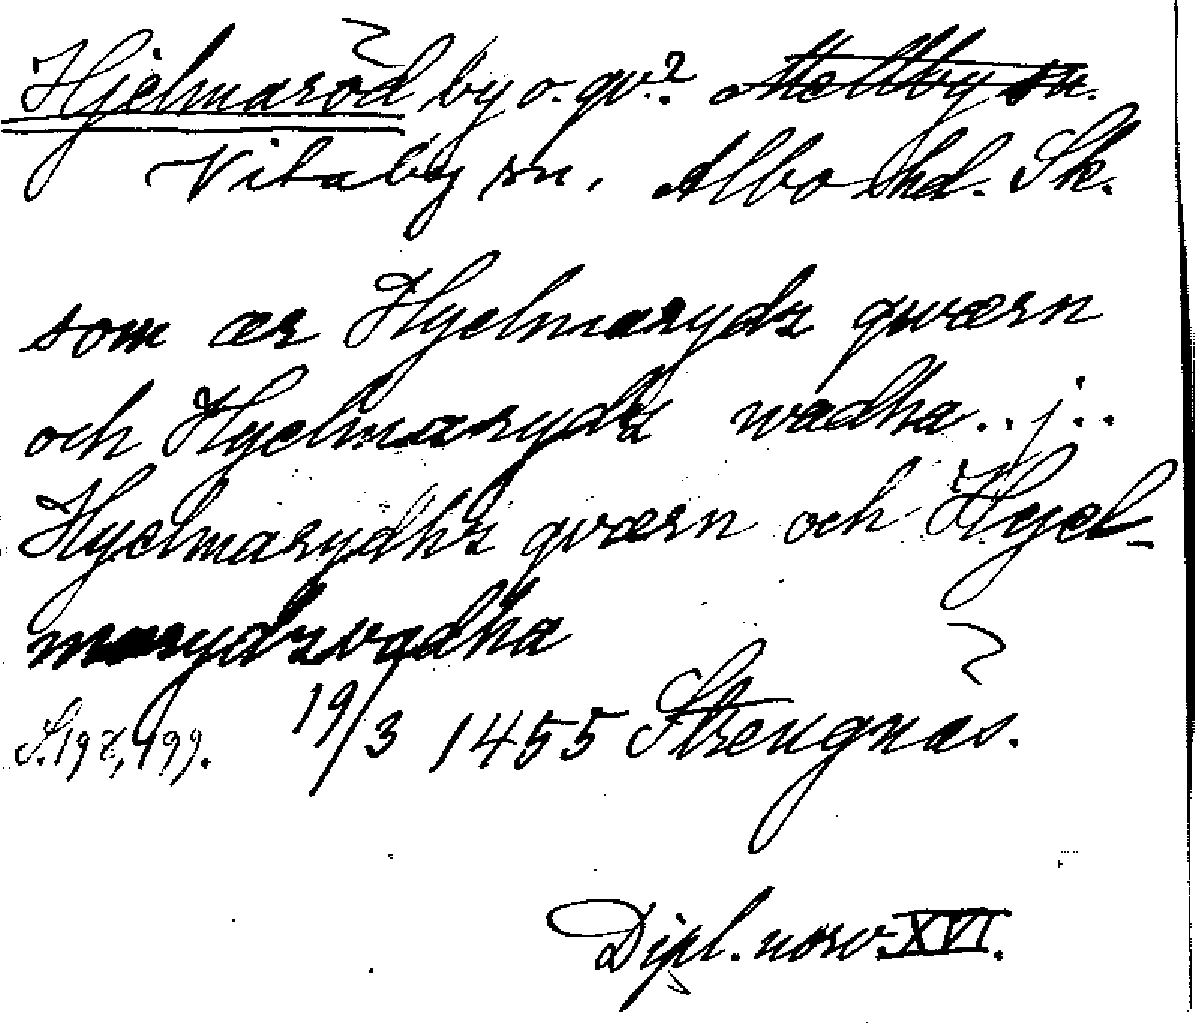 Hjelmaröd by o. qv.? Mellby sn.
Vitaby sn. Albo hd. Sk.
som ær Hyelmarydz qwærn
och Hyelmarydz wadha .. j ..
Hyelmarydhz qværn och Hyel-
marydzvadha
S. 198, 199. 19/3 1455 Strengnäs.
Dipl. norv. XVI.